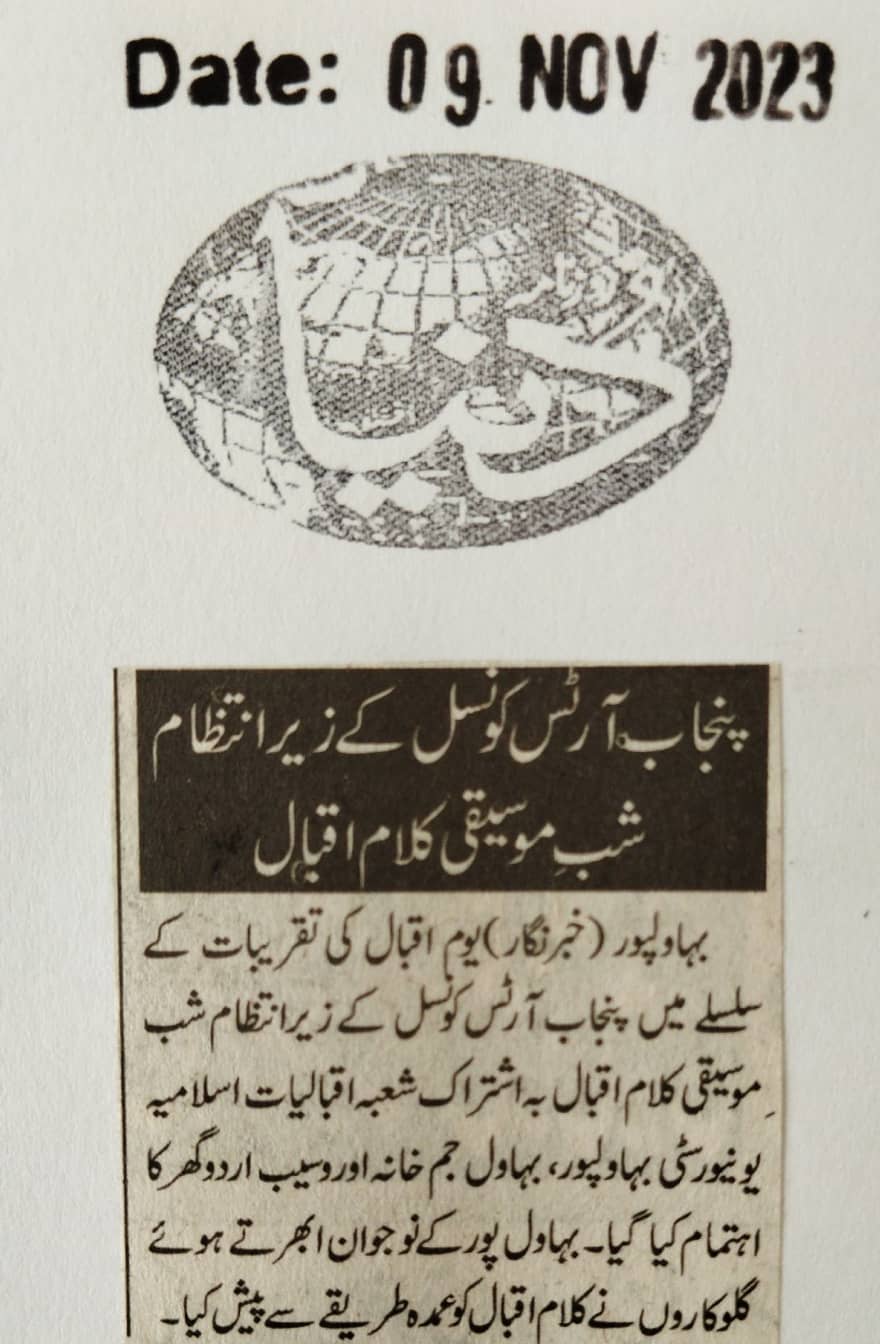 Date: 09 NOV 2023
روزنامہ
دنیا
پنجاب آرٹس کونسل کے زیر انتظام
شبِ موسیقی کلام اقبال
بہاولپور (خبرنگار) یوم اقبال کی تقریبات کے
سلسلے میں پنجاب آرٹس کونسل کے زیر انتظام شب
ِموسیقی کلام اقبال بہ اشتراک شعبہ اقبالیات اسلامیہ
یونیورسٹی بہاولپور، بہاول جم خانہ اور وسیب اردو گھر کا
اہتمام کیا گیا۔ بہاول پور کے نوجوان ابھرتے ہوئے
گلوکاروں نے کلام اقبال کو عمدہ طریقے سے پیش کیا۔